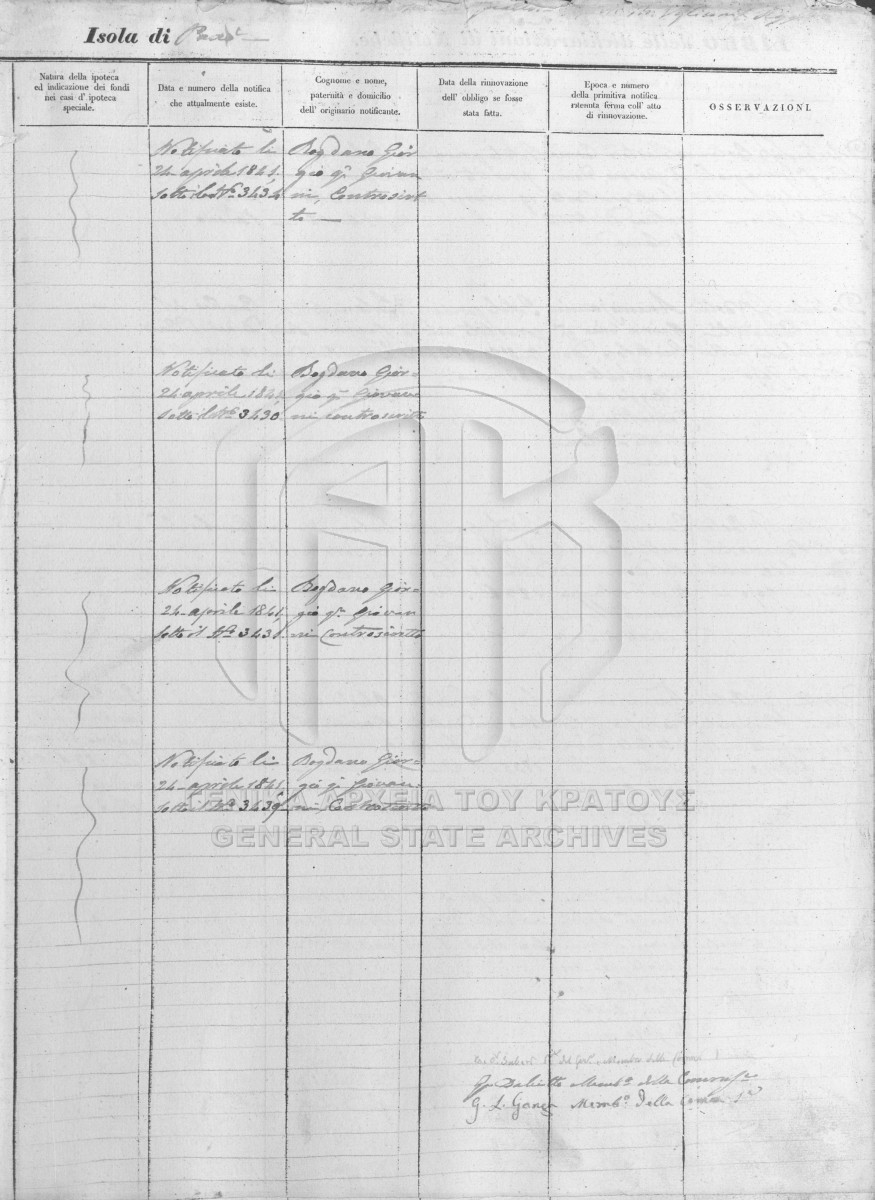 Isola di
Natura della ipoteca
ed indicazione dei fondi
nei casi d' ipoteca
speciale.
Data e numero della notifica
che attualmente esiste.
Cognome e nome,
paternità e domicilio
dell' originario notificante.
Data della rinnovazione
dell' obbligo se fosse
stata fatta.
Epoca e numero
della primitiva notifica
ratenuta ferma coll' atto
di rinnovazione.
OSSERVAZIONI.
Notificato li
24 aprile 1841,
sotto il Nº 3434
Bogdano Gior-
gio qm Giovan
ni, Controscrit
to —
Notificato li
24 aprile 1841,
sotto il Nº 3430
Bogdano Gior=
gio qm Giovan
ni controscritto
Notificato li
24 aprile 1841,
sotto il Nº 3431
Bogdano Gior=
gio qm Giovan
ni Controscritto
Notificato li
24 aprile 1841,
sotto il Nº 3439
Bogdano Gior=
gio qm Giovan-
ni,
ΓΕΝΙΚΑ ΑΡΧΕΙΑ ΤΟΥ ΚΡΑΤΟΥΣ
GENERAL STATE ARCHIVES
Membº della
G. L. Membº. Della